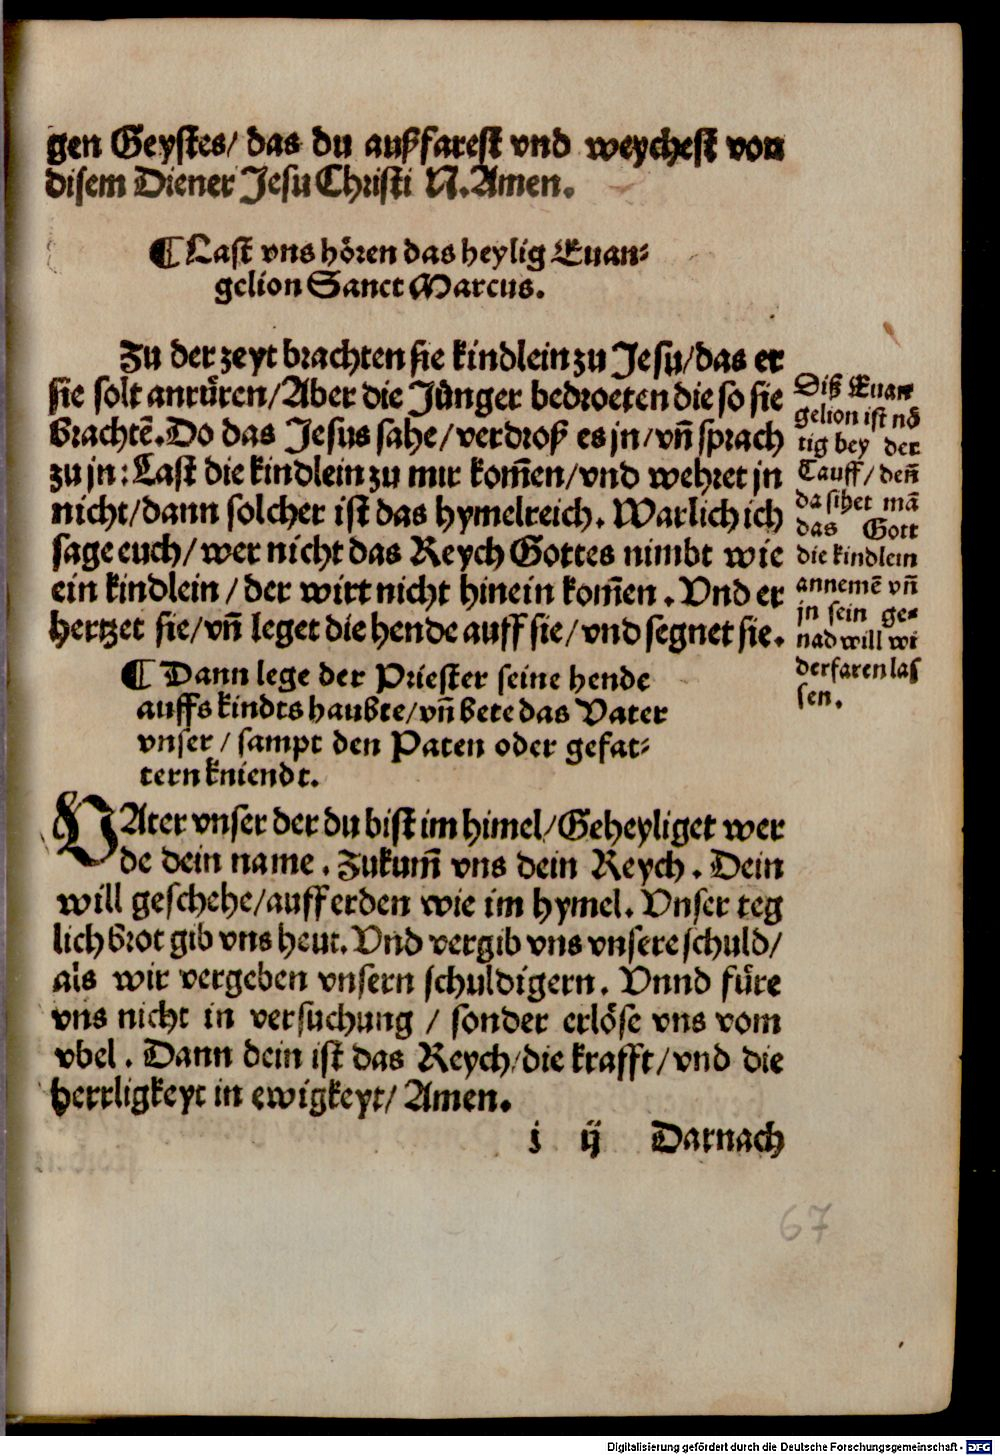 gen Geystes/ das du außfarest vnd weychest von
disem Diener Jesu Christi N. Amen.
¶ Last vns hören das heylig Euan-
gelion Sanct Marcus.
Zu der zeyt brachten sie kindlein zu Jesu/das er
sie solt anrüren/Aber die Jünger bedroeten die so sie
brachtē. Do das Jesus sahe/verdroß es jn/vn̄ sprach
zu jn: Last die kindlein zu mir kom̄en/vnd wehret jn
nicht/dann solcher ist das hymelreich. Warlich ich
sage euch/wer nicht das Reych Gottes nimbt wie
ein kindlein/der wirt nicht hinein kom̄en. Vnd er
hertzet sie/vn̄ leget die hende auff sie/vnd segnet sie.
Diß Euan
gelion ist nō
tig bey der
Tauff/den̄
da sihet mā
das Gott
die kindlein
annemē vn̄
jn sein ge-
nad will wi
derfaren las
sen.
¶ Dann lege der Priester seine hende
auffs kindts haubte/vn̄ bete das Vater
vnser/sampt den Paten oder gefat-
tern kniendt.
VAter vnser der du bist im himel/Geheyliget wer
de dein name. Zukum̄ vns dein Reych. Dein
will geschehe/auff erden wie im hymel. Vnser teg
lich brot gib vns heut. Vnd vergib vns vnsere schuld/
als wir vergeben vnsern schuldigern. Vnnd füre
vns nicht in versuchung/sonder erlöse vns vom
vbel. Dann dein ist das Reych/die krafft/vnd die
herrligkeyt in ewigkeyt/Amen.
j ij Darnach
67
Digitalisierung gefördert durch die Deutsche Forschungsgemeinschaft - DFG